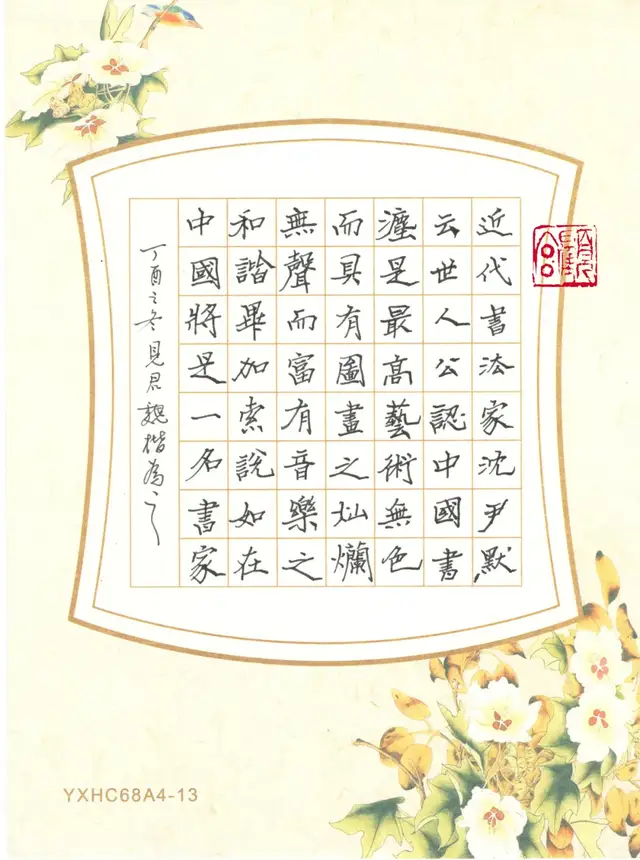 近代書法家沈尹默
云世人公認中國書
灋是最高藝術無色
而具有圖畫之灿爛
無聲而富有音樂之
和諧畢加索說如在
中國將是一名書家
丁酉之冬見君魏楷為之
YXHC68A4-13